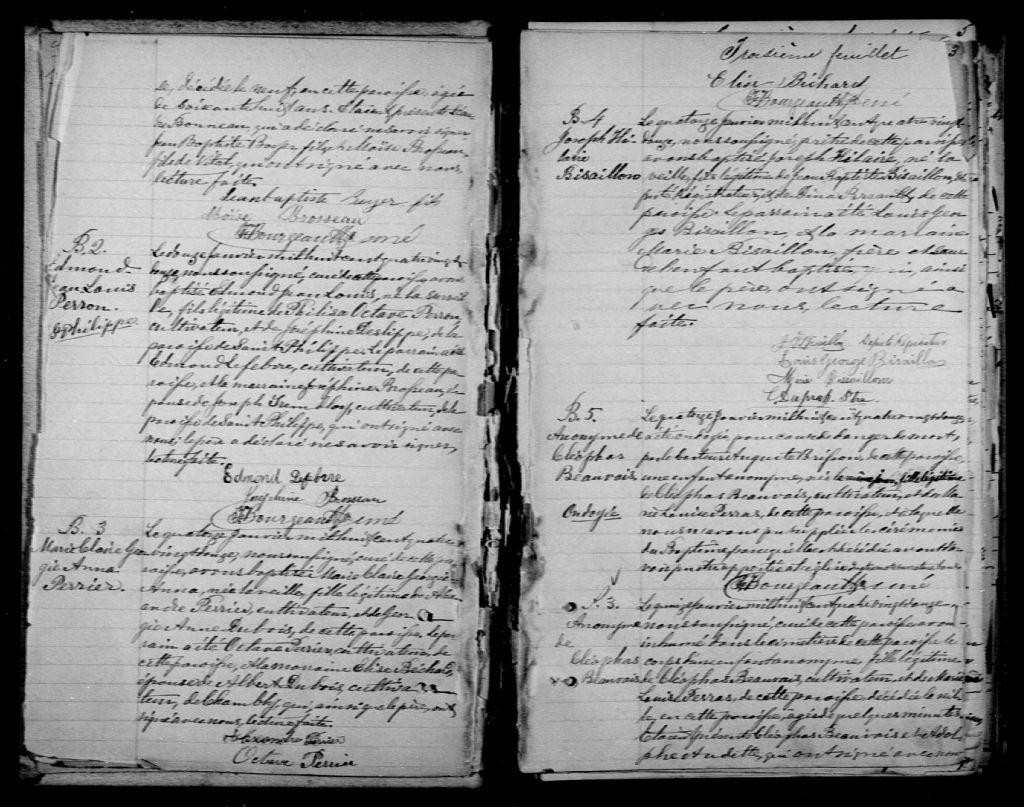 décédée le neuf, en cette paroisse, agée
de soixante huit ans. Etaient présents
Bonneau, qui a déclaré ne savoir signer
Jean Baptiste Boyer fils, & Moïse Brosseau,
fils de Vital, qui ont signé avec nous,
lecture faite.
Jean baptiste Buyer fils
Moïse Brosseau
FBourgeault curé
B. 2.
Edmond
Jean Louis
Perron.
St Philippe
Le douze janvier mil huit cent quatre vingt
douze, nous soussigné, curé de cette paroisse avons
baptisé Edmond Jean Louis, né la surveil
le, fils légitime de Philias Octave Perron
cultivateur, et de Joséphine Deslippe, de la
paroisse de Saint Philippe. Le parrain a été
Edmond Lefebvre, cultivateur, de cette pa-
roisse, et la marraine Joséphine Brosseau, é-
pouse de Joseph Tremblay, cultivateur, de la
paroisse de Saint Philippe, qui ont signé avec
nous; le père a déclaré ne savoir signer,
lecture faite.
Edmond Lefebvre
Josephine Brosseau
FBourgeault curé
B. 3
Marie Claire Geor
gie Anna
Perrier.
Le quatorze janvier mil huit cent quatre
vingt douze, nous soussigné, curé de cette pa-
roisse, avons baptisé Marie Claire Georgie
Anna, née la veille, fille légitime de Alex
andre Perrier, cultivateur, et de Geor
gie Anne Dubois, de cette paroisse. Le par-
rain a été Octave Perrier, cultivateur, de
cette paroisse, & la marraine Elise Béchard,
épouse de Albert Dubois, cultiva
teur, de Chambly, qui, ainsi que le père, ont
signé avec nous, lecture faite
Alexandre Perrier
Octave Perrier
Troisième feuillet
3
Elise Bichard
FBourgeault curé
B. 4
Joseph Hi-
laire
Bisaillon
Le quatorze janvier mil huit cent quatre vingt
douze, nous soussigné, prêtre de cette paroisse
avons baptisé Joseph Hilaire, né la
veille, fils légitime de Jean Baptiste Bisaillon, dé
puté Régistrateur, & de Dina Breault, de cette
paroisse. Le parrain a été Louis Geor
ges Bisaillon, & la marraine
Marie Bisaillon, frère et soeur
de l'enfant baptisé, qui, ainsi
que le père, ont signé a
vec nous, lecture
faite.
J B Bisaillon Deputé Régistrateur
Louis George Bisaillon
Marie Bisaillon
C Dupras Ptre
B. 5.
Anonyme de
Cléophas
Beauvais
Ondoyée
Le quatorze janvier mil huit cent quatre vingt douze,
a été ondoyée, pour cause de danger de mort,
par le docteur Auguste Brisson, de cette paroisse,
une enfant anonyme, née le même jour, fille légitime
de Cléophas Beauvais, cultivateur, et de Ma
rie Louise Perras, de cette paroisse, et à laquelle
nous n'avons pu suppléer les cérémonies
du Baptême, parce qu'elle est décédée avant d'a-
voir pu être apportée à l'église
FBourgeault curé
S. 3.
Anonyme
de
Cléophas
Beauvais
Le quinze janvier mil huit cent quatre vingt douze
nous soussigné, curé de cette paroisse avons
inhumé dans le cimetière de cette paroisse le
corps d'une enfant anonyme, fille légitime
de Cléophas Beauvais, cultivateur, et de Marie
Louise Perras, de cette paroisse, décédée la veil
le, en cette paroisse, agée de quelques minutes.
Etaient présents Cléophas Beauvais et Adol
phe Audette, qui ont signé avec nous